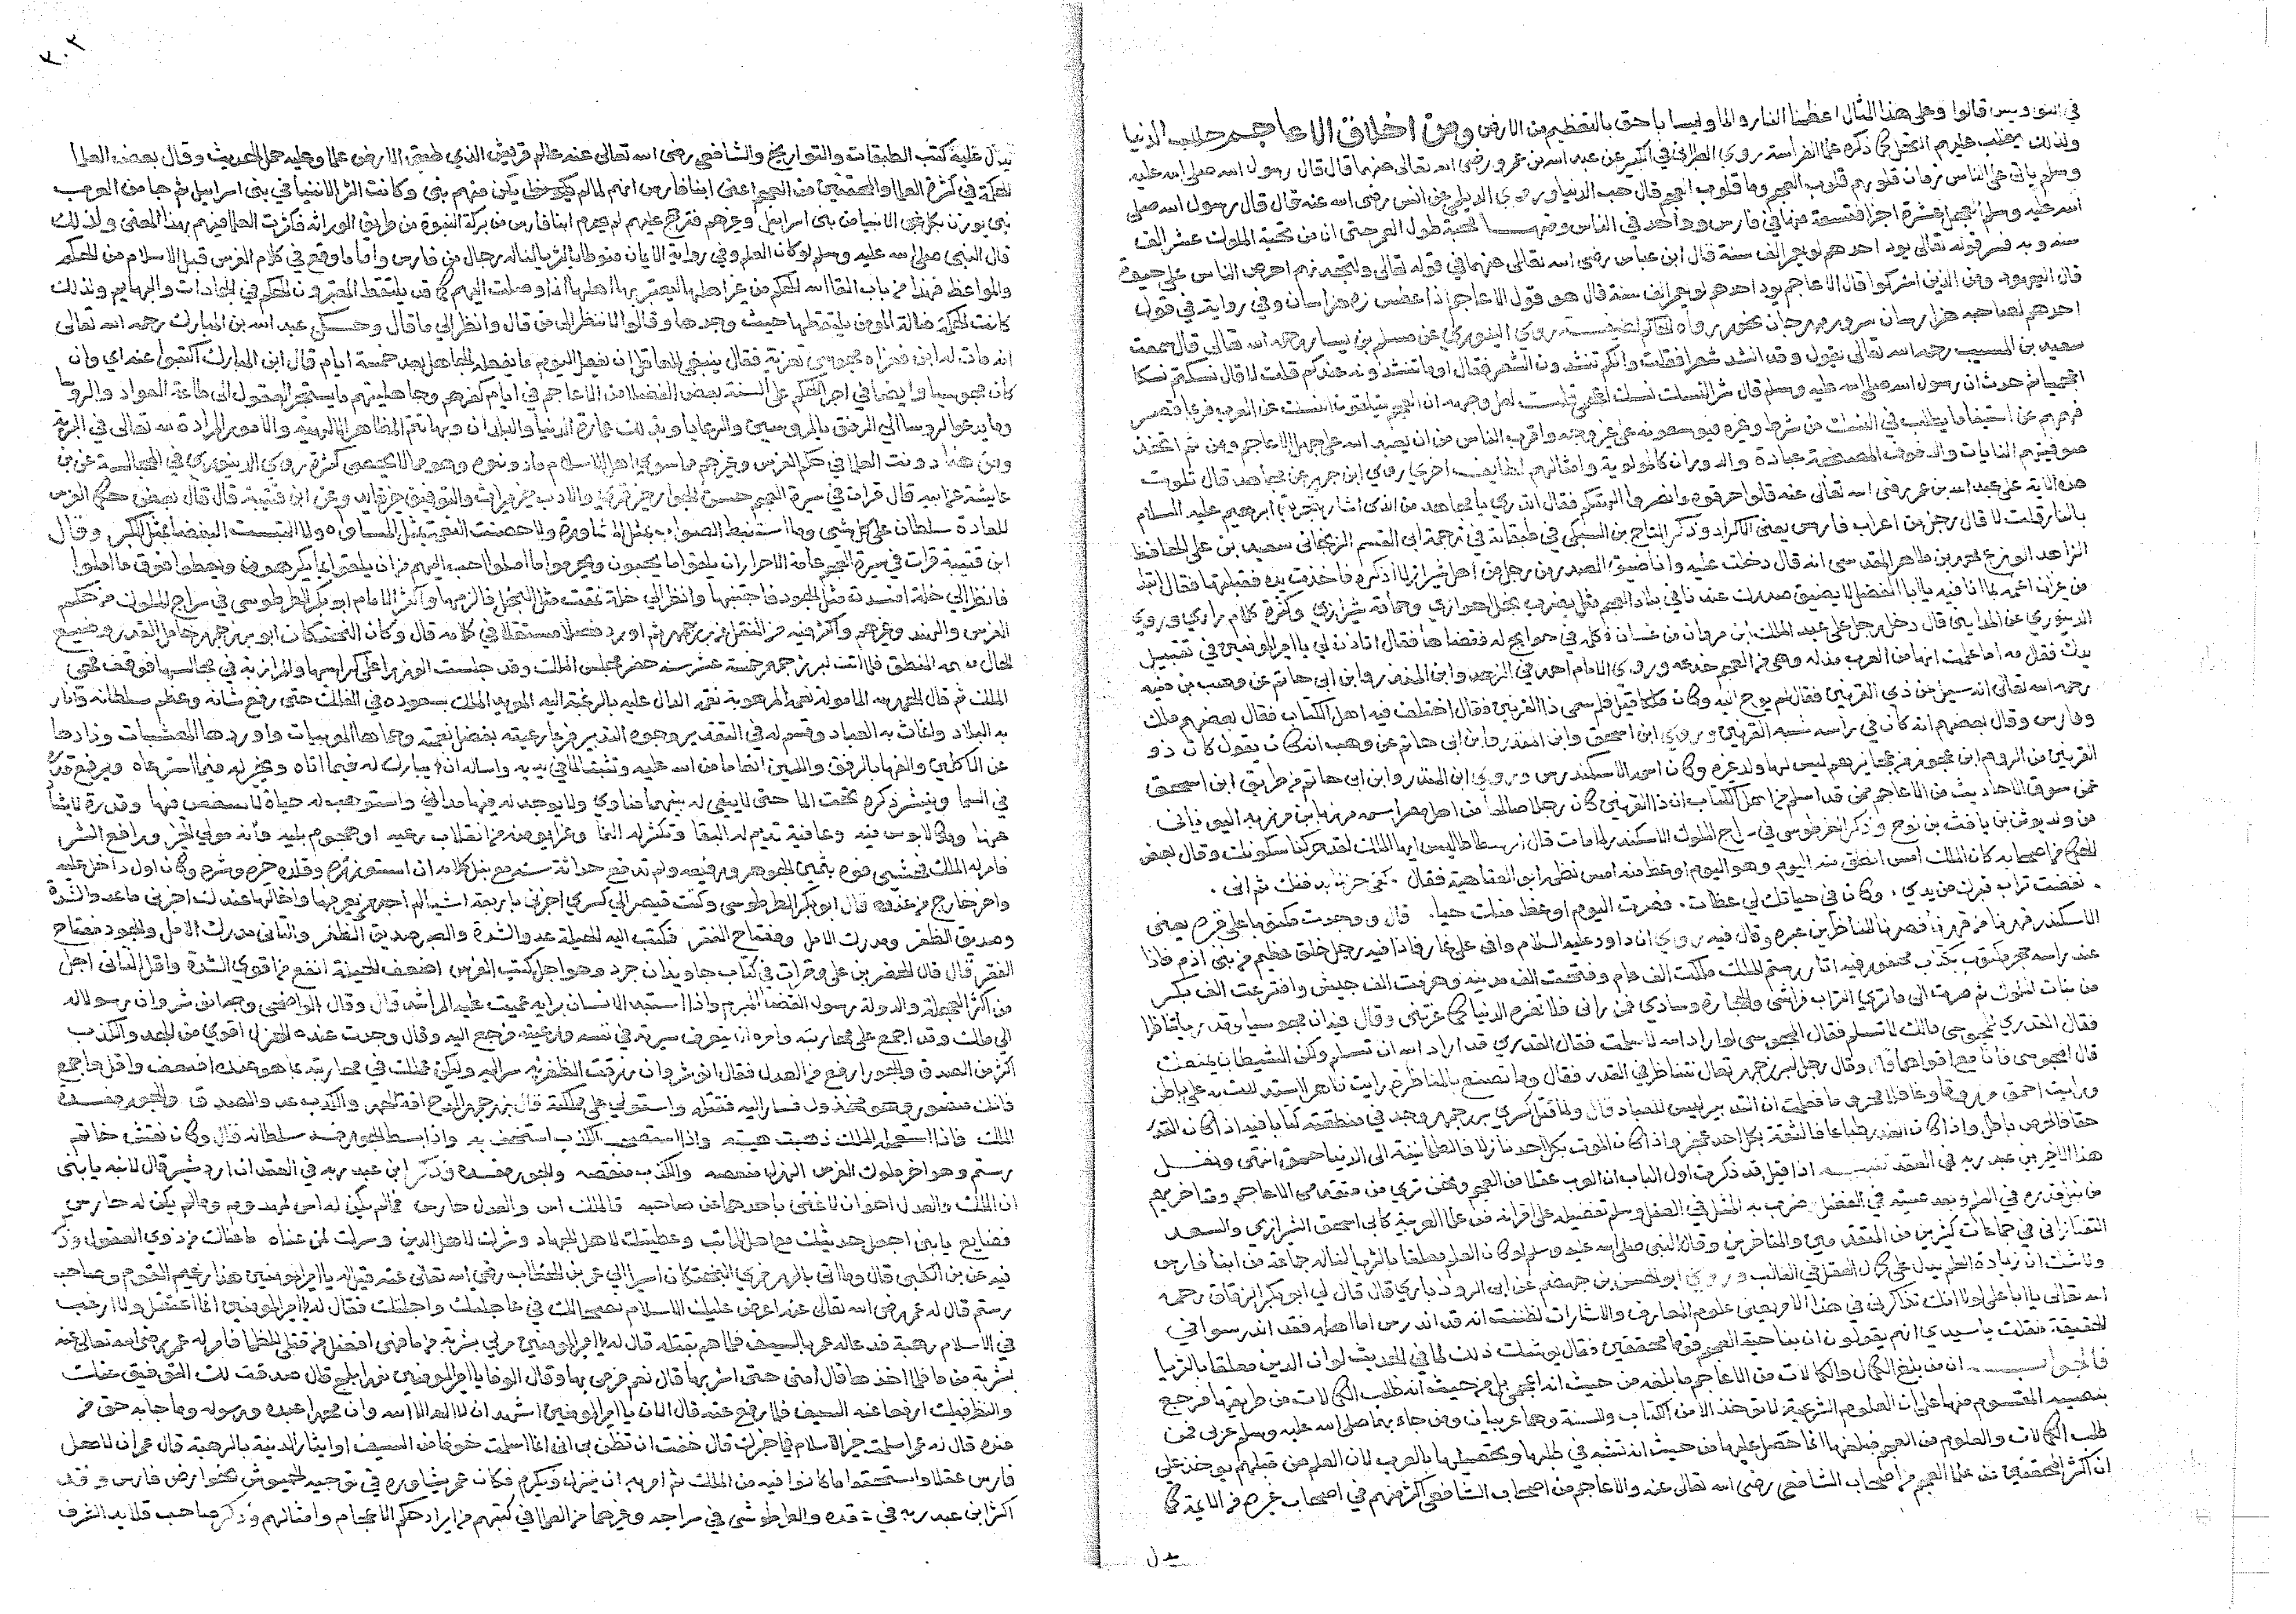 في النوروس قالوا وعلى هذا المثال اعظمنا النار والماء وليسا باحق بالتعظيم من الارض ومن اخلاق الاعاجم حب الدنيا
ولذلك يغلب عليهم البخل كما ذكره علماء الفراسة روى الطبراني في الكبير عن عبد الله بن عمرو رضى الله تعالى عنهما قال قال رسول الله صلى الله عليه
وسلم ياتي على الناس زمان قلوبهم قلوب العجم وما قلوب العجم قال حب الدنيا وروى الديلمي عن انس رضى الله عنه قال قال رسول الله صلى
الله عليه وسلم البخل عشرة اجزا فتسعة منها في فارس وواحد في الناس ومنها محبة طول العمر حتى ان من تحية الملوك عش الف
سنه وبه فسر قوله تعالى يود احدهم لو يعمر الف سنة قال ابن عباس رضى الله تعالى عنهما في قوله تعالى ولتجدنهم احرص الناس على حيوة
قال اليهود ومن الذين اشركوا قال الاعاجم يود احدهم لو يعمر الف سنة قال هو قول الاعاجم اذا عطس زه هزار سال وفي رواية هي قول
احدهم لصاحبه هزار سال سرور مهرجان رواه الحاكم لطيفة روى الدينوري عن مسلم بن يسار رحمه الله تعالى قال سمعت
سعيد بن المسيب رحمه الله تعالى يقول وقد انشد شعرا فقلت وانكم تنشدون الشعر فقال اوما تنشدونه عندكم قلت لا قال نسكتم نسكا
اعجميا ثم حدث ان رسول الله صلى الله عليه وسلم قال شر النسك نسك اعجمي قلت
هذه الاية على عبد الله بن عمر رضى الله تعالى عنه قالوا حرقوه وانصروا الهتكم فقال اتدري يا مجاهد من الذي اشار بتحريق ابرهيم عليه السلام
بالنار قلت لا قال رجل من اعراب فارس يعنى الاكراد وذكر التاج بن السبكي في طبقاته في ترجمة ابى القسم الزنجاني سعيد بن على الحافظ
الزاهد محمد بن طاهر المقدسى انه قال دخلت عليه وانا ضيق الصدر من رجل من اهل شيراز لا اذكره فاخذت يده فقبلتها فقال ابتدا
من غير ان اعلمه بما انا فيه يا ابا الفضل لا يضيق صدرك عندنا في بلاد العجم مثل يضرب بخل اهوازي وحماقة شيرازي وكثرة كلام رازي وروى
الدينوري عن المدايني قال دخل رجل على عبد الملك بن مروان من غسان فكلمه في حوايج له فقضاها فقال اتاذن لي يا امير المومنين في تقبيل
يدك فقال مه اما علمت انها من العرب مذلة وهى من العجم خدعه وروى الامام احمد في الزهد وابن المنذر وابن ابى حاتم عن وهب بن منبه
رحمه الله تعالى انه سيل عن ذي القرنين فقال لم يوح اليه وكان ملكا قيل فلم سمى ذا القرنين فقال اختلف فيه اهل الكتاب فقال بعضهم ملك
وفارس وقال بعضهم انه كان في راسه شبه القرنين وروى ابن اسحق وابن المنذر وابن ابى حاتم عن وهب انه كان يقول كان ذو
القرنين من الروم ابن عجوز من عجايزهم ليس لها ولد غيره وكان اسمه الاسكندرس وروى ابن المنذر وابن ابى حاتم من طريق ابن اسحق
عمن سوق الاحاديث من الاعاجم ممن قد اسلم من اهل الكتاب ان ذا القرنين كان رجلا صالحا من اهل مصر اسمه مرزبا بن مرزبه اليوناني
من ولد يونن بن يافث بن نوح وذكر الطرطوسى في سراج الملوك الاسكندر لما مات قال ارسطاطاليس ايها الملك لقد حركنا سكونك وقال بعض
الحكما من اصحابه كان الملك امس انطق منه اليوم وهو اليوم اوعظ منه امس نظمه ابو العتاهية فقال . كفى حزنا بدفنك ثم انى .
. نفضت تراب قبرك من يدي . وكان في حياتك لي عظات . فصرت اليوم اوعظ منك حيا . قال ووجدت مكتوبا على قبر يعنى
الاسكندر قهرنا من قهرنا فصرنا للناظرين عبره وقال فيه روى ان داود عليه السلام وافى على غار فاذا فيه رجل خلق عظيم من بنى ادم فاذا
عند راسه حجر مكتوب بكتاب محفور فيه انا رستم الملك ملكت الف عام وفتحت الف مدينه وهزمت الف جيش وافترعت الف بكر
من بنات الملوك ثم صرت الى ما ترى التراب فراشى والحجاره وسادي فمن راني فلا تغره الدنيا كما غرتنى وقال
فقال القدري للمجوسى مالك لا تسلم فقال المجوسى لو اراد الله لاسلمت فقال القدري قد اراد الله ان تسلم ولكن الشيطان يمنعك
قال المجوسى فانا مع اقواهما وقال رجل لبزرجمهر تعال نتناظر في القدر فقال وما تصنع بالمناظرة رايت ظاهرا استدللت به على باطن
ورايت احمق مرزوقا وعاقلا محروما فعلمت ان التدبير ليس للعباد قال ولما قتل كسرى بزرجمهر وجد في منطقته كتابا فيه اذا كان القدر
حقا فالحرص باطل واذا كان الغدر طباعا فالثقة بكل احد عجز واذا كان الموت بكل احد نازلا فالطمانينة الى الدنيا حمق انتهى ونقل
هذا الاخير ابن عبد ربه في العقد تنبيه اذا قيل قد ذكرت اول الباب ان العرب عقلا من العجم ونحن نرى من متقدمى الاعاجم ومتاخريهم
التفتازانى في جماعات كثيرين من المتقدمين والمتاخرين وقال النبى صلى الله عليه وسلم لو كان العلم معلقا بالثريا لناله جماعة من ابنا فارس
ولا شك ان زيادة العلم يدل على كمال العقل في الغالب وروى ابو الحسن بن جهضم عن ابى الروذباري قال قال لي ابو بكر الزقاق رحمه
الله تعالى يا ابا على لولا انك تذاكرني في هذا الامر يعنى علوم المعارف والاشارات لظننت انه قد اندرس
الحقيقة فقلت يا سيدي انهم يقولون ان بناحية العجم قوما محققين فقال يوشك ذلك لما في الحديث لو ان الدين معلقا بالثريا
فالجواب ان من بلغ الكمال والكمالات من الاعاجم ما بلغه من حيث انه اعجمى بل من حيث انه طلب الكمالات من طريقها فرجع
بنصيبه المقسوم منها على ان العلوم الشرعية لا تؤخذ الا من الكتاب والسنة وهما عربيان ومن جاء بهما صلى الله عليه وسلم عربى فمن
طلب الكمالات والعلوم من العجم فبلغها انما حصل عليها من حيث انه تشبه في طلبها وتحصيلها بالعرب لان العلم من قبلهم يوخذ على
ان اكثر المحققين من علما العجم من اصحاب الشافعى رضى الله تعالى عنه والاعاجم من اصحاب الشافعى اكثر منهم في اصحاب غيره من الايمة كما
يدل
٣٠٢
يدل عليه كتب الطبقات والتواريخ والشافعى رضى الله تعالى عنه عالم قريش الذي طبق الارض علما وعليه حمل الحديث وقال بعض العلما
الحكمة في كثرة العلما والمحققين من العجم اعنى ابنا فارس انهم لما لم يكن منهم نبى وكانت اكثر الانبيا في بنى اسراييل ثم جا من العرب
نبى يوزن بكل الانبيا من بنى اسراييل وغيرهم فترجح عليهم لم يحرم ابنا فارس من بركة النبوة من طريق الوراثه فكثرت العلما فيهم بهذا المعنى ولذلك
قال النبى صلى الله عليه وسلم لو كان العلم وفي رواية الايمان منوطا بالثريا لناله رجال من فارس واما ما وقع في كلام الفرس قبل الاسلام من الحكم
والمواعظ فهذا من باب القا الله الحكم من غير اهلها ليعتبر بها اهلها اذا وصلت اليهم كما قد يلتقط المعتبرون الحكم في الجمادات والبهايم ولذلك
كانت الحكمة ضالة المومن يلتقطها حيث وجدها وقالوا لا تنظر الى من قال وانظر الى ما قال وحكى عبد الله بن المبارك رحمه الله تعالى
انه مات له ابن فعزاه مجوسى تعزية فقال ينبغي للعاقل ان يفعل اليوم ما يفعله الجاهل بعد خمسة ايام قال ابن المبارك اكتبوا عنه اي وان
كان مجوسيا وايضا في اجرا الحكم على السنة بعض الفضلا من الاعاجم في ايام كفرهم وجاهليتهم ما يستجر العقول الى طاعة القواد والروسا
وما يدعو الروسا الى الرفق بالمروسين والرعايا وبذلك عمارة الدنيا والبلدان
ومن هنا دونت العلما في حكم الفرس وغيرهم ما سوى اهل الاسلام ما دونوه وهو مما لا يحصى كثرة روى الدينوري في المجالسة عن ابن
عايشة عن ابيه قال قرات في سيرة العجم حسن الجوار خير قرين والادب خير ميراث والتوفيق خير قايد وعن ابن قتيبة قال قال بعض حكما الفرس
للعادة سلطان على كل شى وما استنبط الصواب بمثل المشاورة ولا حصنت النعم بمثل المساواه ولا اكتسبت البغضا بمثل الكبر وقال
ابن قتيبة قرات في سيرة العجم عامة الاحرار ان يلقوا ما يحبون ويحرموا ما املوا احب اليهم من ان يلقوا بما يكرهون ويعطوا فوق ما املوا
فانظر الى خلة افسدت مثل الجود فاجتنبها وانظر الى خلة عفت مثل البخل فالزمها واكثر الامام ابو بكر الطرطوسى في سراج الملوك من حكم
الفرس والهند وغيرهم واكثر فيه من النقل عن بزرجمهر ثم اورد فصلا مستقلا في كلامه قال وكان البختكان ابو بزرجمهر خامل القدر وضيع
الحال سفيه المنطق فلما اتت لبزرجمهر خمسة عشر سنه حضر مجلس الملك وقد جلست الوزرا على كراسيها والمرازبة في مجالسها فوقف فحيى
الملك ثم قال الحمد لله المامولة نعمه المرهوبة نقمه الدال عليه بالرغبة اليه المويد الملك بسعوده في الفلك حتى رفع شانه وعظم سلطانه وانار
به البلاد واغاث به العباد وقسم له في التقدير وجوه التدبير فرعا رعيته بفضل نعمته وحماها الموبيات واوردها المعشبات وذادها
عن الاكالين والفها بالرفق واللين انعاما من الله عليه وتثبيتا لما في يديه واساله ان يبارك له فيما اتاه ويخير له فيما استرعاه ويرفع قدره
في السما وينشر ذكره تحت الما حتى لا يبقى له بينهما مناوى ولا يوجد له فيهما مداني واستوهب له حياة لا تنغص فيها وقدرة لا شاذ
عنها وملكا لا بوس فيه وعافية تديم له البقا وتكثر له النما وعزا يومنه من انقلاب رعيه او هجوم بليه فانه مولي الخير ورافع الشر
فامر له الملك فحشى فوه بثمين الجوهر ورفيعه ولم تدفع حداثة سنه مع نبل كلامه ان استوزره وقلده خيره وشره وكان اول داخل عليه
واخر خارج من عنده قال ابو بكر الطرطوسى وكتب قيصر الى كسرى اخبرني باربعة اشيا لم اجد من يعرفها واخالها عندك اخبرني ما عدو الشدة
وصديق الظفر ومدرك الامل ومفتاح الفقر فكتب اليه الحيلة عدو الشدة والصبر صديق الظفر والتاني مدرك الامل والجود مفتاح
الفقر قال قال الخضر بن على وقرات في كتاب جاويذان خرد وهو اجل كتب الفرس اضعف الحيلة انفع من اقوى الشدة واقل التاني اجل
من اكثر العجلة والدولة رسوله القضا المبرم واذا استبد الانسان برايه عميت عليه المراشد قال وقال الواضحى وجه انوشروان رسولا له
الى ملك وقد اجمع على محاربته وامره ان يتعرف سيرته في نفسه ورعيته فرجع اليه وقال وجدت عنده الهزل اقوى من الجد والكذب
اكثر من الصدق والجور ارفع من العدل فقال انوشروان رزقت الظفر به سر اليه وليكن عملك في محاربته بما هو عنده اضعف واقل واوضع
فانك منصور وهو مخذول فسار اليه فقتله واستولى على مملكته
الملك فاذا استعمل الملك ذهبت هيبته واذا استصحب الكذب استخف به واذا بسط الجور فسد سلطانه قال وكان نقش خاتم
رستم وهو اخر ملوك الفرس الهزل مبغضه والكذب منقصه والجور مفسده وذكر ابن عبد ربه في العقد ان اردشير قال لابنه يا بنى
ان الملك والعدل اخوان لا غنى باحدهما عن صاحبه فالملك اس والعدل حارس فما لم يكن له اس فمهدوم وما لم يكن له حارس
فضايع يا بنى اجعل حديثك مع اهل المراتب وعطيتك لاهل الجهاد وبشرك لاهل الدين وسرك لمن عناه ما عناك من ذوي العقول وذكر
فيه عن ابن الكلبى قال وما اتى بالهرمزان اسيرا الى عمر بن الخطاب رضي الله تعالى عنه قيل له يا امير المومنين هذا زعيم العجم وصاحب
رستم قال له عمر رضى الله تعالى عنه اعرض عليك الاسلام نصحا لك في عاجلك واجلك فقال له يا امير المومنين انما اعتقد ولا ارغب
في الاسلام رهبة فدعا له عمر بالسيف فلما هم بقتله قال له يا امير المومنين مر لي بشربة من ما فهى افضل من قتلى على الظما فامر له عمر رضى الله تعالى عنه
بشربة من ما فلما اخذها قال امنى حتى اشربها قال نعم فرمى بها وقال الوفا يا امير المومنين نور ابلج قال صدقت لك التوقيف عنك
والنظر فيك ارفعا عنه السيف فلما رفع عنه قال الان يا امير المومنين اشهد ان لا اله الا الله وان محمدا عبده ورسوله وما جا به حق من
عنده قال له عمر اسلمت خير الاسلام فما اخرك قال خفت ان تظن بى انى انما اسلمت خوفا من السيف او ايثارا لدينه بالرهبة قال عمر ان لاهل
فارس عقلا واستحقوا ما كانوا فيه من الملك ثم امر به ان يبر له ويكرم فكان عمر يشاوره في توجيه الجيوش نحو ارض فارس وقد
اكثر ابن عبد ربه في عقده والطرطوشى في سراجه وغيرهما من العلما في كتبهم من ايراد حكم الاعجام وامثالهم وذكر صاحب قلايد الشرف